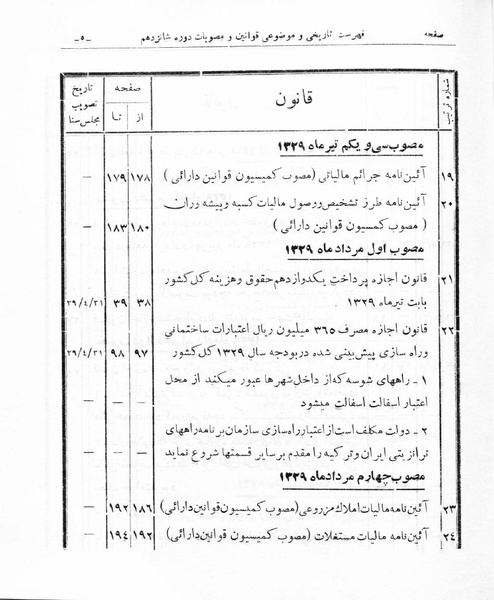 صفحه فهرست تاریخی و موضوعی قوانین و مصوبات دوره شانزدهم -۵-
شماره ترتیب قانون صفحه تاریخ تصویب مجلس سنا
از تا
مصوب سی و یکم تیر ماه ۱۳۲۹
۱۹ آئین نامه جرائم مالیاتی (مصوب کمیسیون قوانین دارائی) ۱۷۸ ۱۷۹ —
۲۰ آئین نامه طرز تشخیص و وصول مالیات کسبه و پیشه وران
( مصوب کمیسیون قوانین دارائی ) ۱۸۰ ۱۸۳ —
مصوب اول مرداد ماه ۱۳۲۹
۲۱ قانون اجازه پرداخت یکدوازدهم حقوق و هزینه کل کشور
بابت تیر ماه ۱۳۲۹ ۳۸ ۳۹ ۲۹/۴/۳۱
۲۲ قانون اجازه مصرف ۳۶۵ میلیون ریال اعتبارات ساختمانی
و راه سازی پیش بینی شده در بودجه سال ۱۳۲۹ کل کشور ۹۷ ۹۸ ۲۹/۴/۳۱
۱ - راههای شوسه که از داخل شهرها عبور میکنند از محل
اعتبار اسفالت اسفالت میشود — — —
۲ - دولت مکلف است از اعتبار راه سازی سازمان برنامه راههای
ترانزیتی ایران و ترکیه را مقدم بر سایر قسمتها شروع نماید — — —
مصوب چهارم مرداد ماه ۱۳۲۹
۲۳ آئین نامه مالیات املاک مزروعی (مصوب کمیسیون قوانین دارائی) ۱۸۶ ۱۹۲ —
۲۴ آئین نامه مالیات مستغلات (مصوب کمیسیون قوانین دارائی) ۱۹۲ ۱۹۴ —